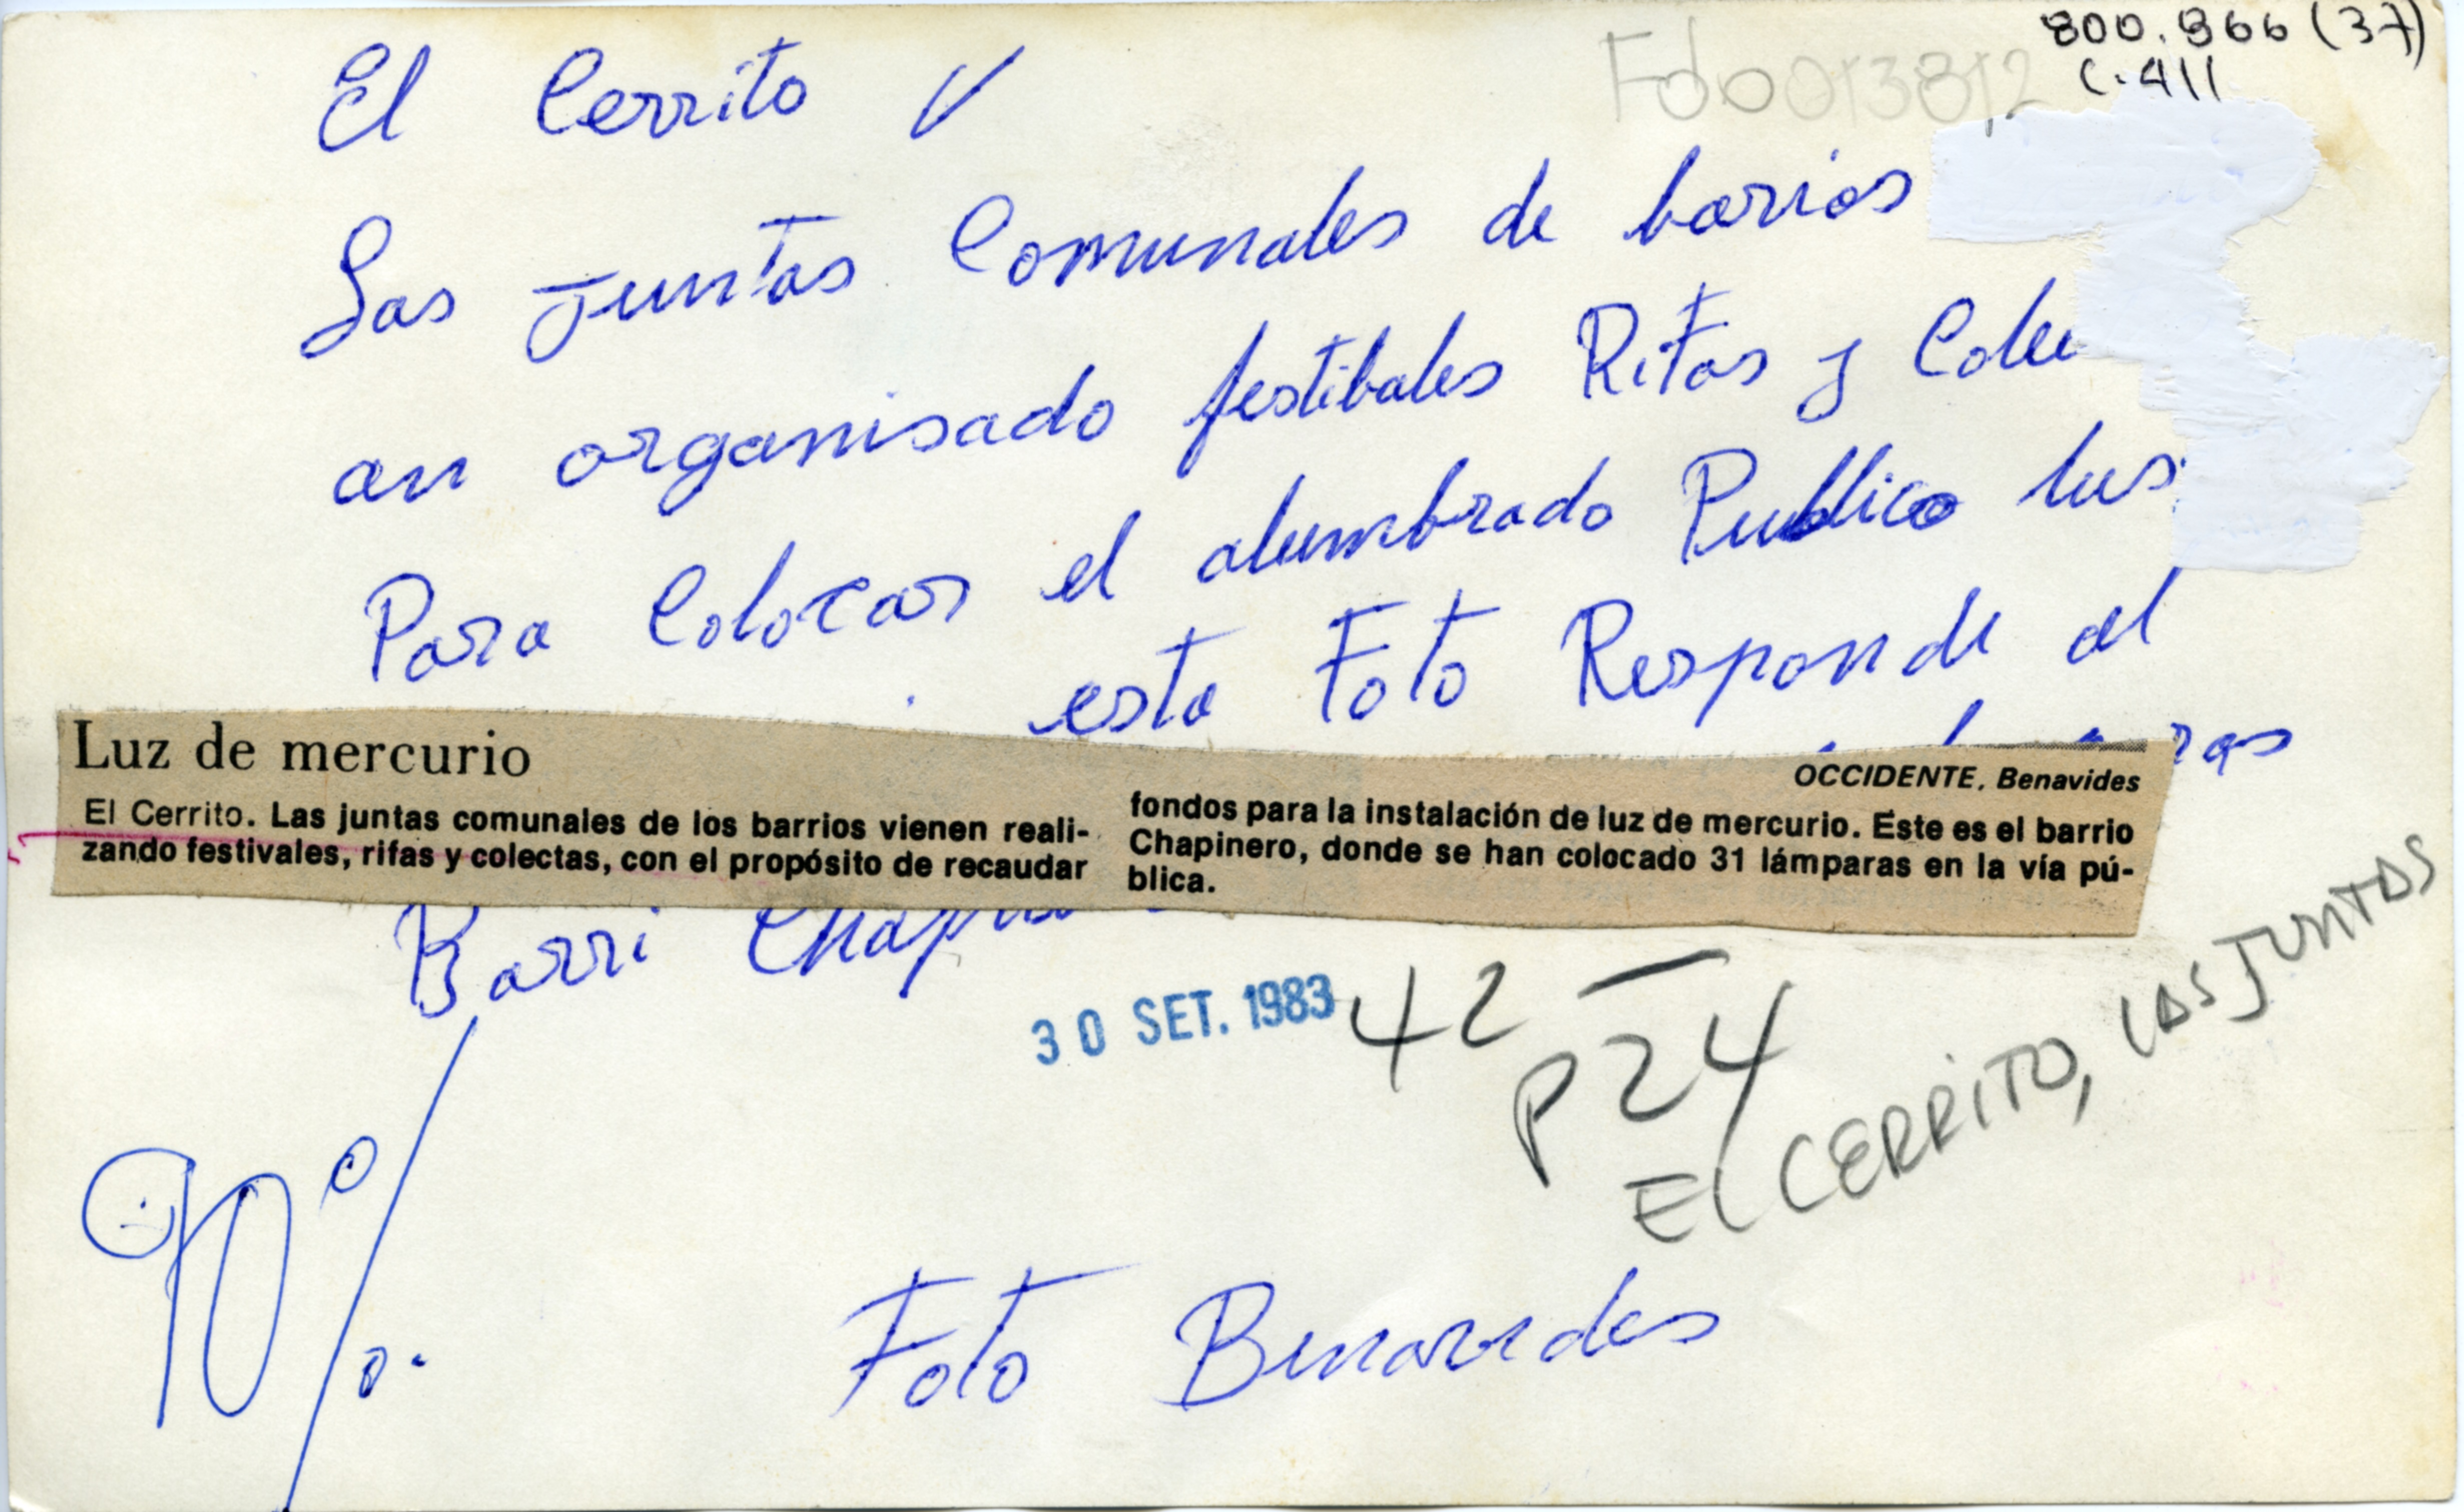 800.866 (37)
C.411
Fdo0013812
El Cerrito V
Las juntas Comunales de barios
an organisado festibales Rifas y Cole
Para Colocar el alumbrado Publico lus
esta Foto Responde al
ras
Luz de mercurio
OCCIDENTE, Benavides
El Cerrito. Las juntas comunales de los barrios vienen reali-
zando festivales, rifas y colectas, con el propósito de recaudar
fondos para la instalación de luz de mercurio. Este es el barrio
Chapinero, donde se han colocado 31 lámparas en la vía pú-
blica.
Barri Chapin
30 SET. 1983
42
P24
EL CERRITO, LAS JUNTAS
90%
Foto Benavides